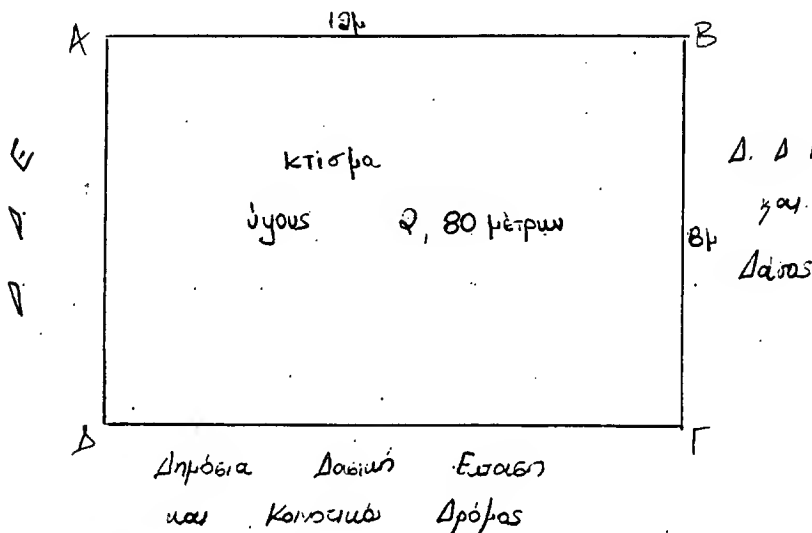 12μ
Α Β
κτίσμα
ύψους 2,80 μέτρων
8μ
Δ. Δ
και
Δάσος
Δ Γ
Δημόσια Δασική Έκταση
και Κοινοτικό Δρόμος